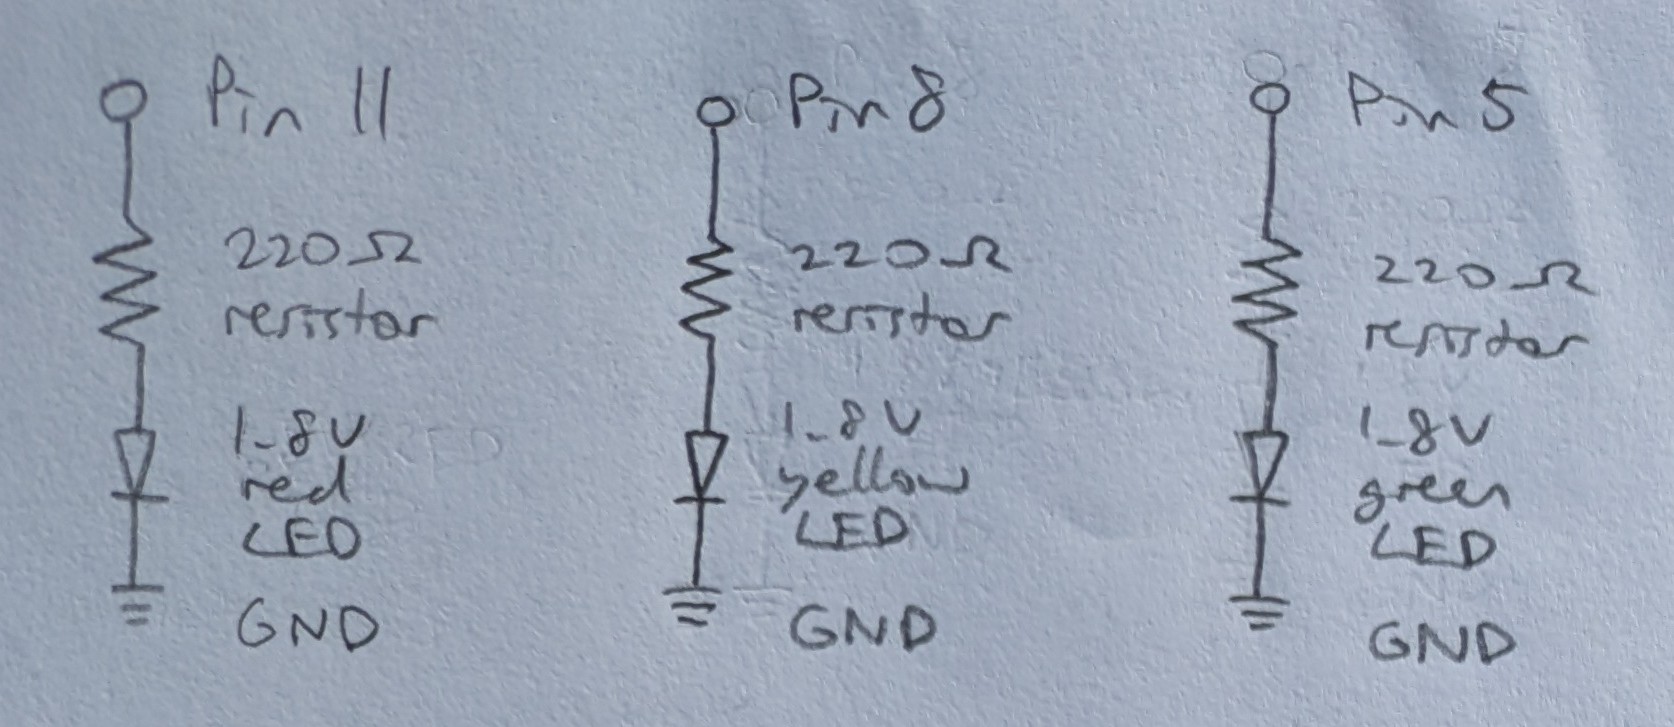 Pin 11
220Ω
resistor
1.8V
red
LED
GND
Pin 8
220Ω
resistor
1.8V
yellow
LED
GND
Pin 5
220Ω
resistor
1.8V
green
LED
GND